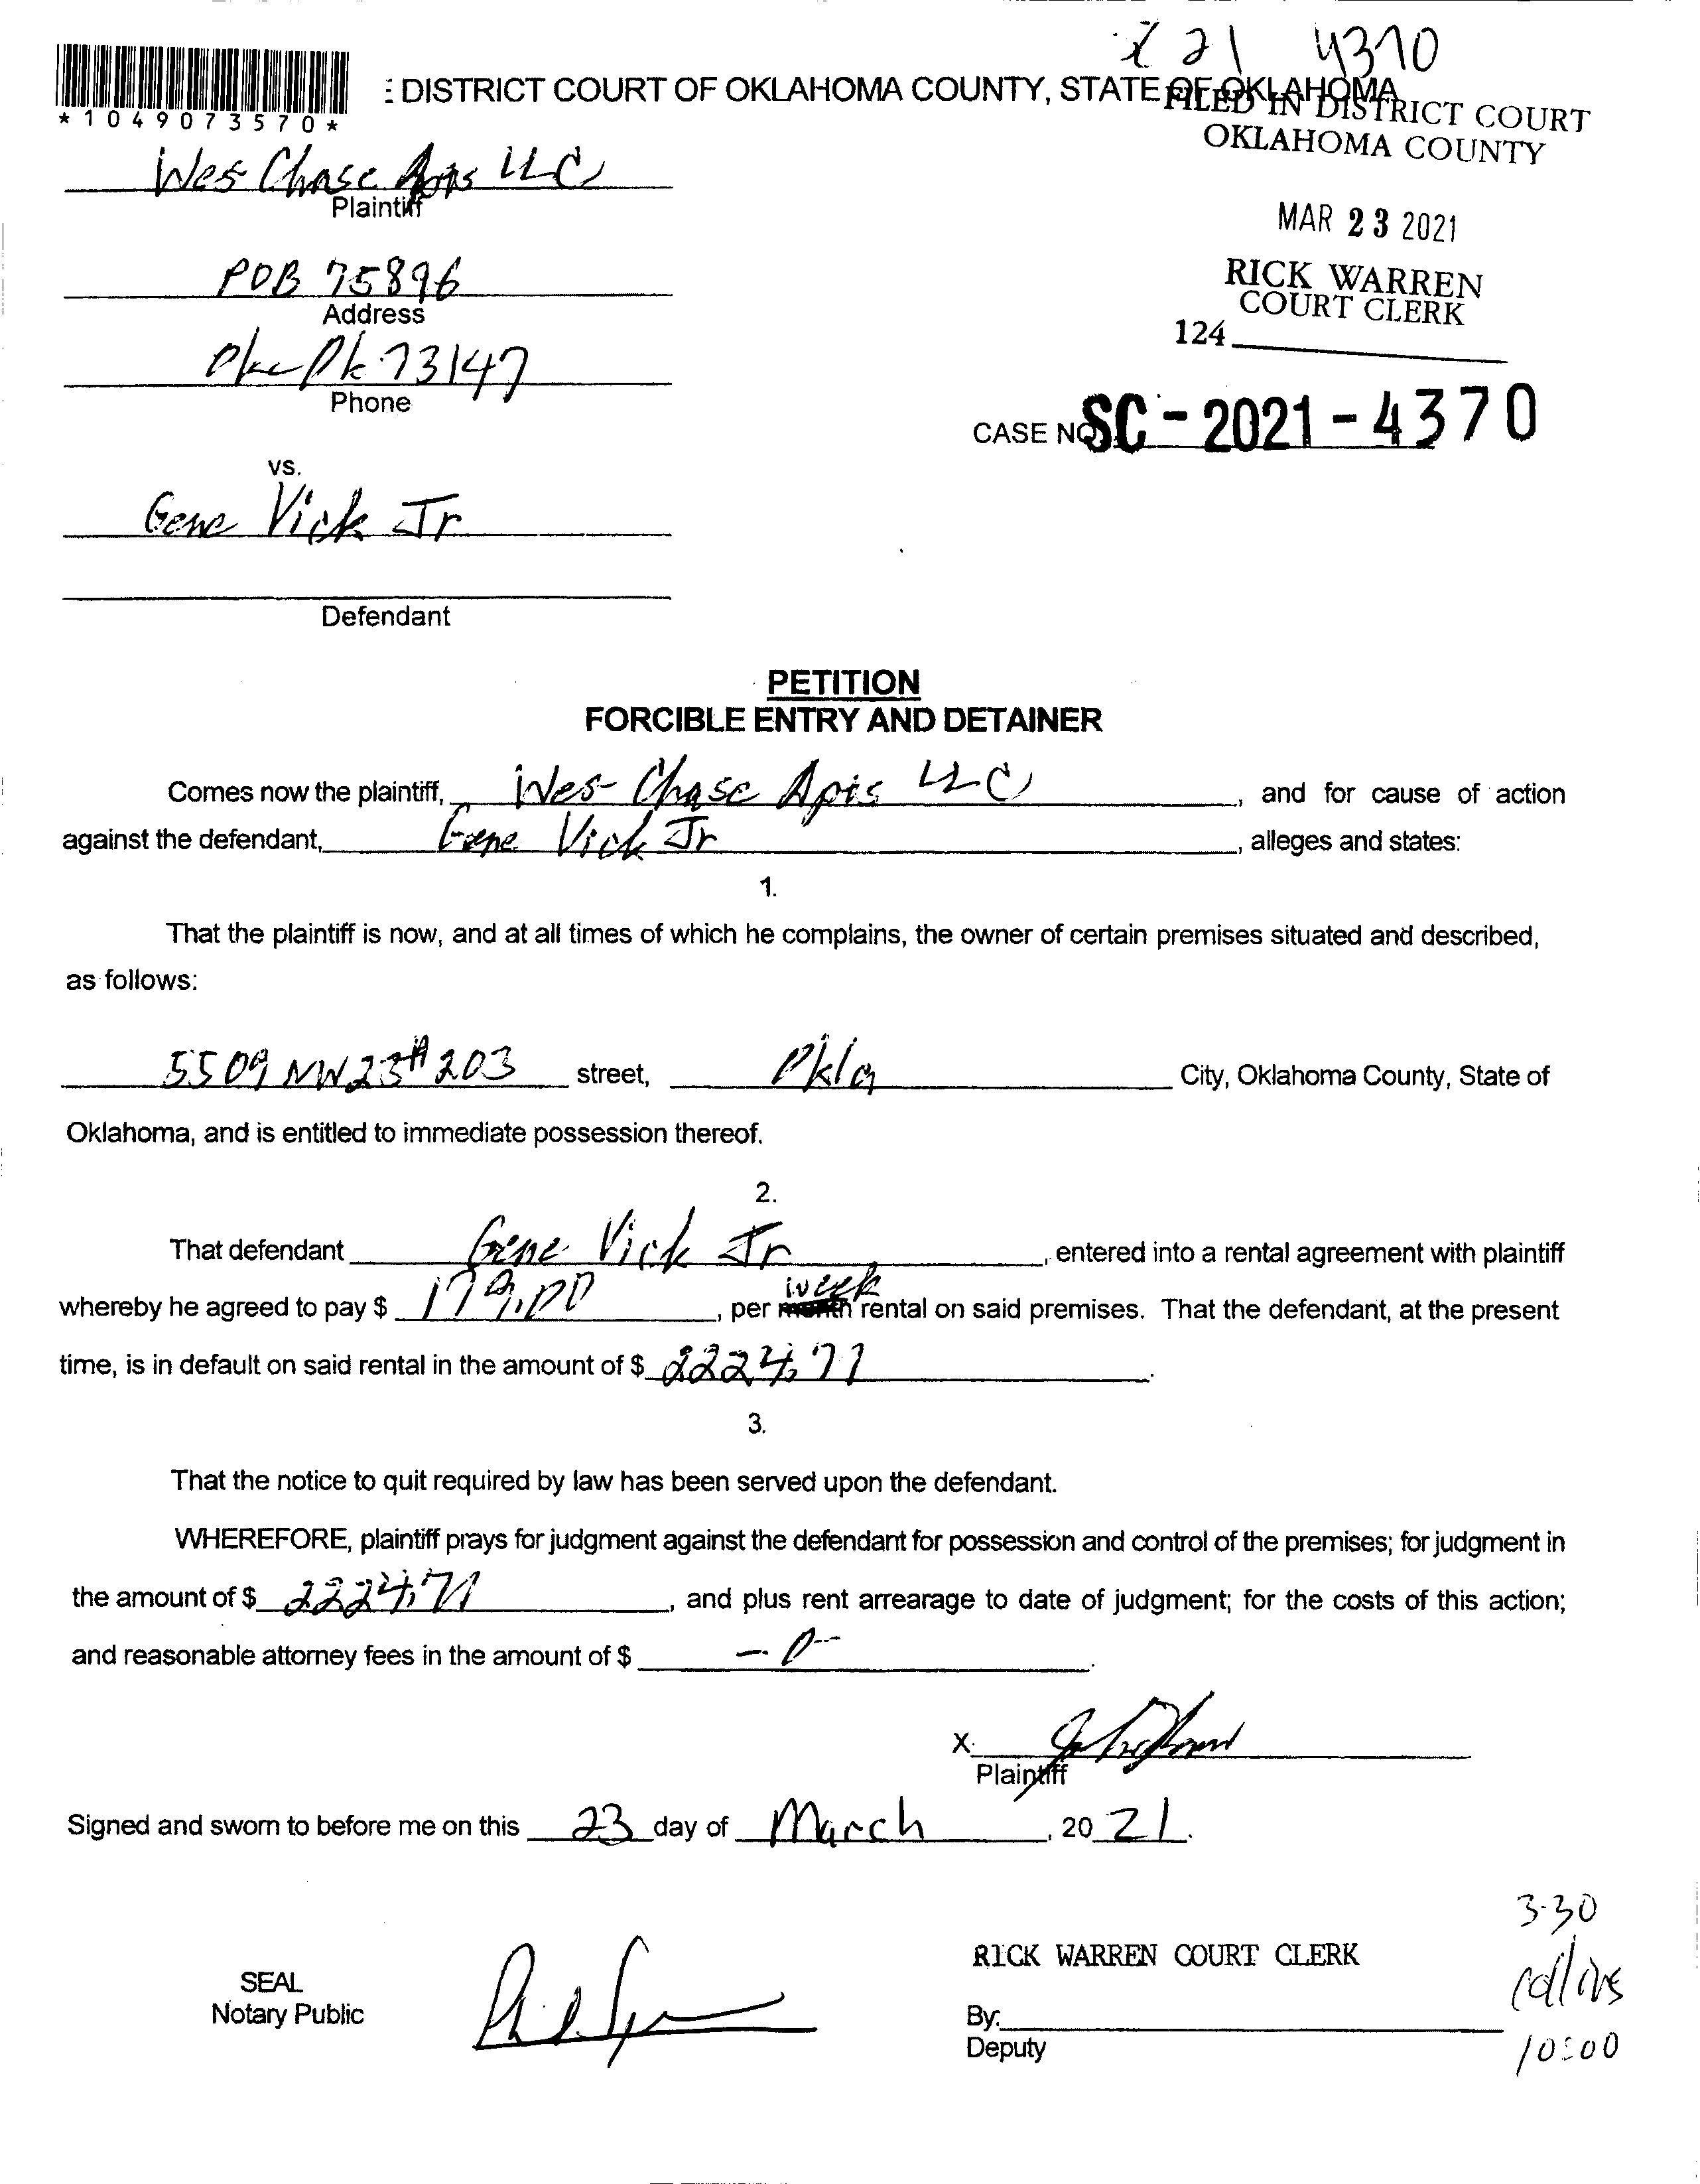 21 4370
: DISTRICT COURT OF OKLAHOMA COUNTY, STATE OF OKLAHOMA
FILED IN DISTRICT COURT
OKLAHOMA COUNTY
*1049073570*
Wes Chase Apts LLC
Plaintiff
MAR 23 2021
POB 75896
Address
RICK WARREN
COURT CLERK
124
73147
Phone
CASE NO. SC-2021-4370
vs.
Gene Vick Jr
Defendant
PETITION
FORCIBLE ENTRY AND DETAINER
Comes now the plaintiff, Wes-Chase Apts LLC, and for cause of action
against the defendant, Gene Vick Jr, alleges and states:
1.
That the plaintiff is now, and at all times of which he complains, the owner of certain premises situated and described,
as follows:
5509 NW 23 # 203 street, Okla City, Oklahoma County, State of
Oklahoma, and is entitled to immediate possession thereof.
2.
That defendant Gene Vick Jr, entered into a rental agreement with plaintiff
week
whereby he agreed to pay $ 179.00, per month rental on said premises. That the defendant, at the present
time, is in default on said rental in the amount of $ 2224.71.
3.
That the notice to quit required by law has been served upon the defendant.
WHEREFORE, plaintiff prays for judgment against the defendant for possession and control of the premises; for judgment in
the amount of $ 2224.71, and plus rent arrearage to date of judgment; for the costs of this action;
and reasonable attorney fees in the amount of $ -0-.
X
Plaintiff
Signed and sworn to before me on this 23 day of March, 20 21.
3-30
RICK WARREN COURT CLERK
SEAL
Collins
Notary Public
By:
Deputy
10:00